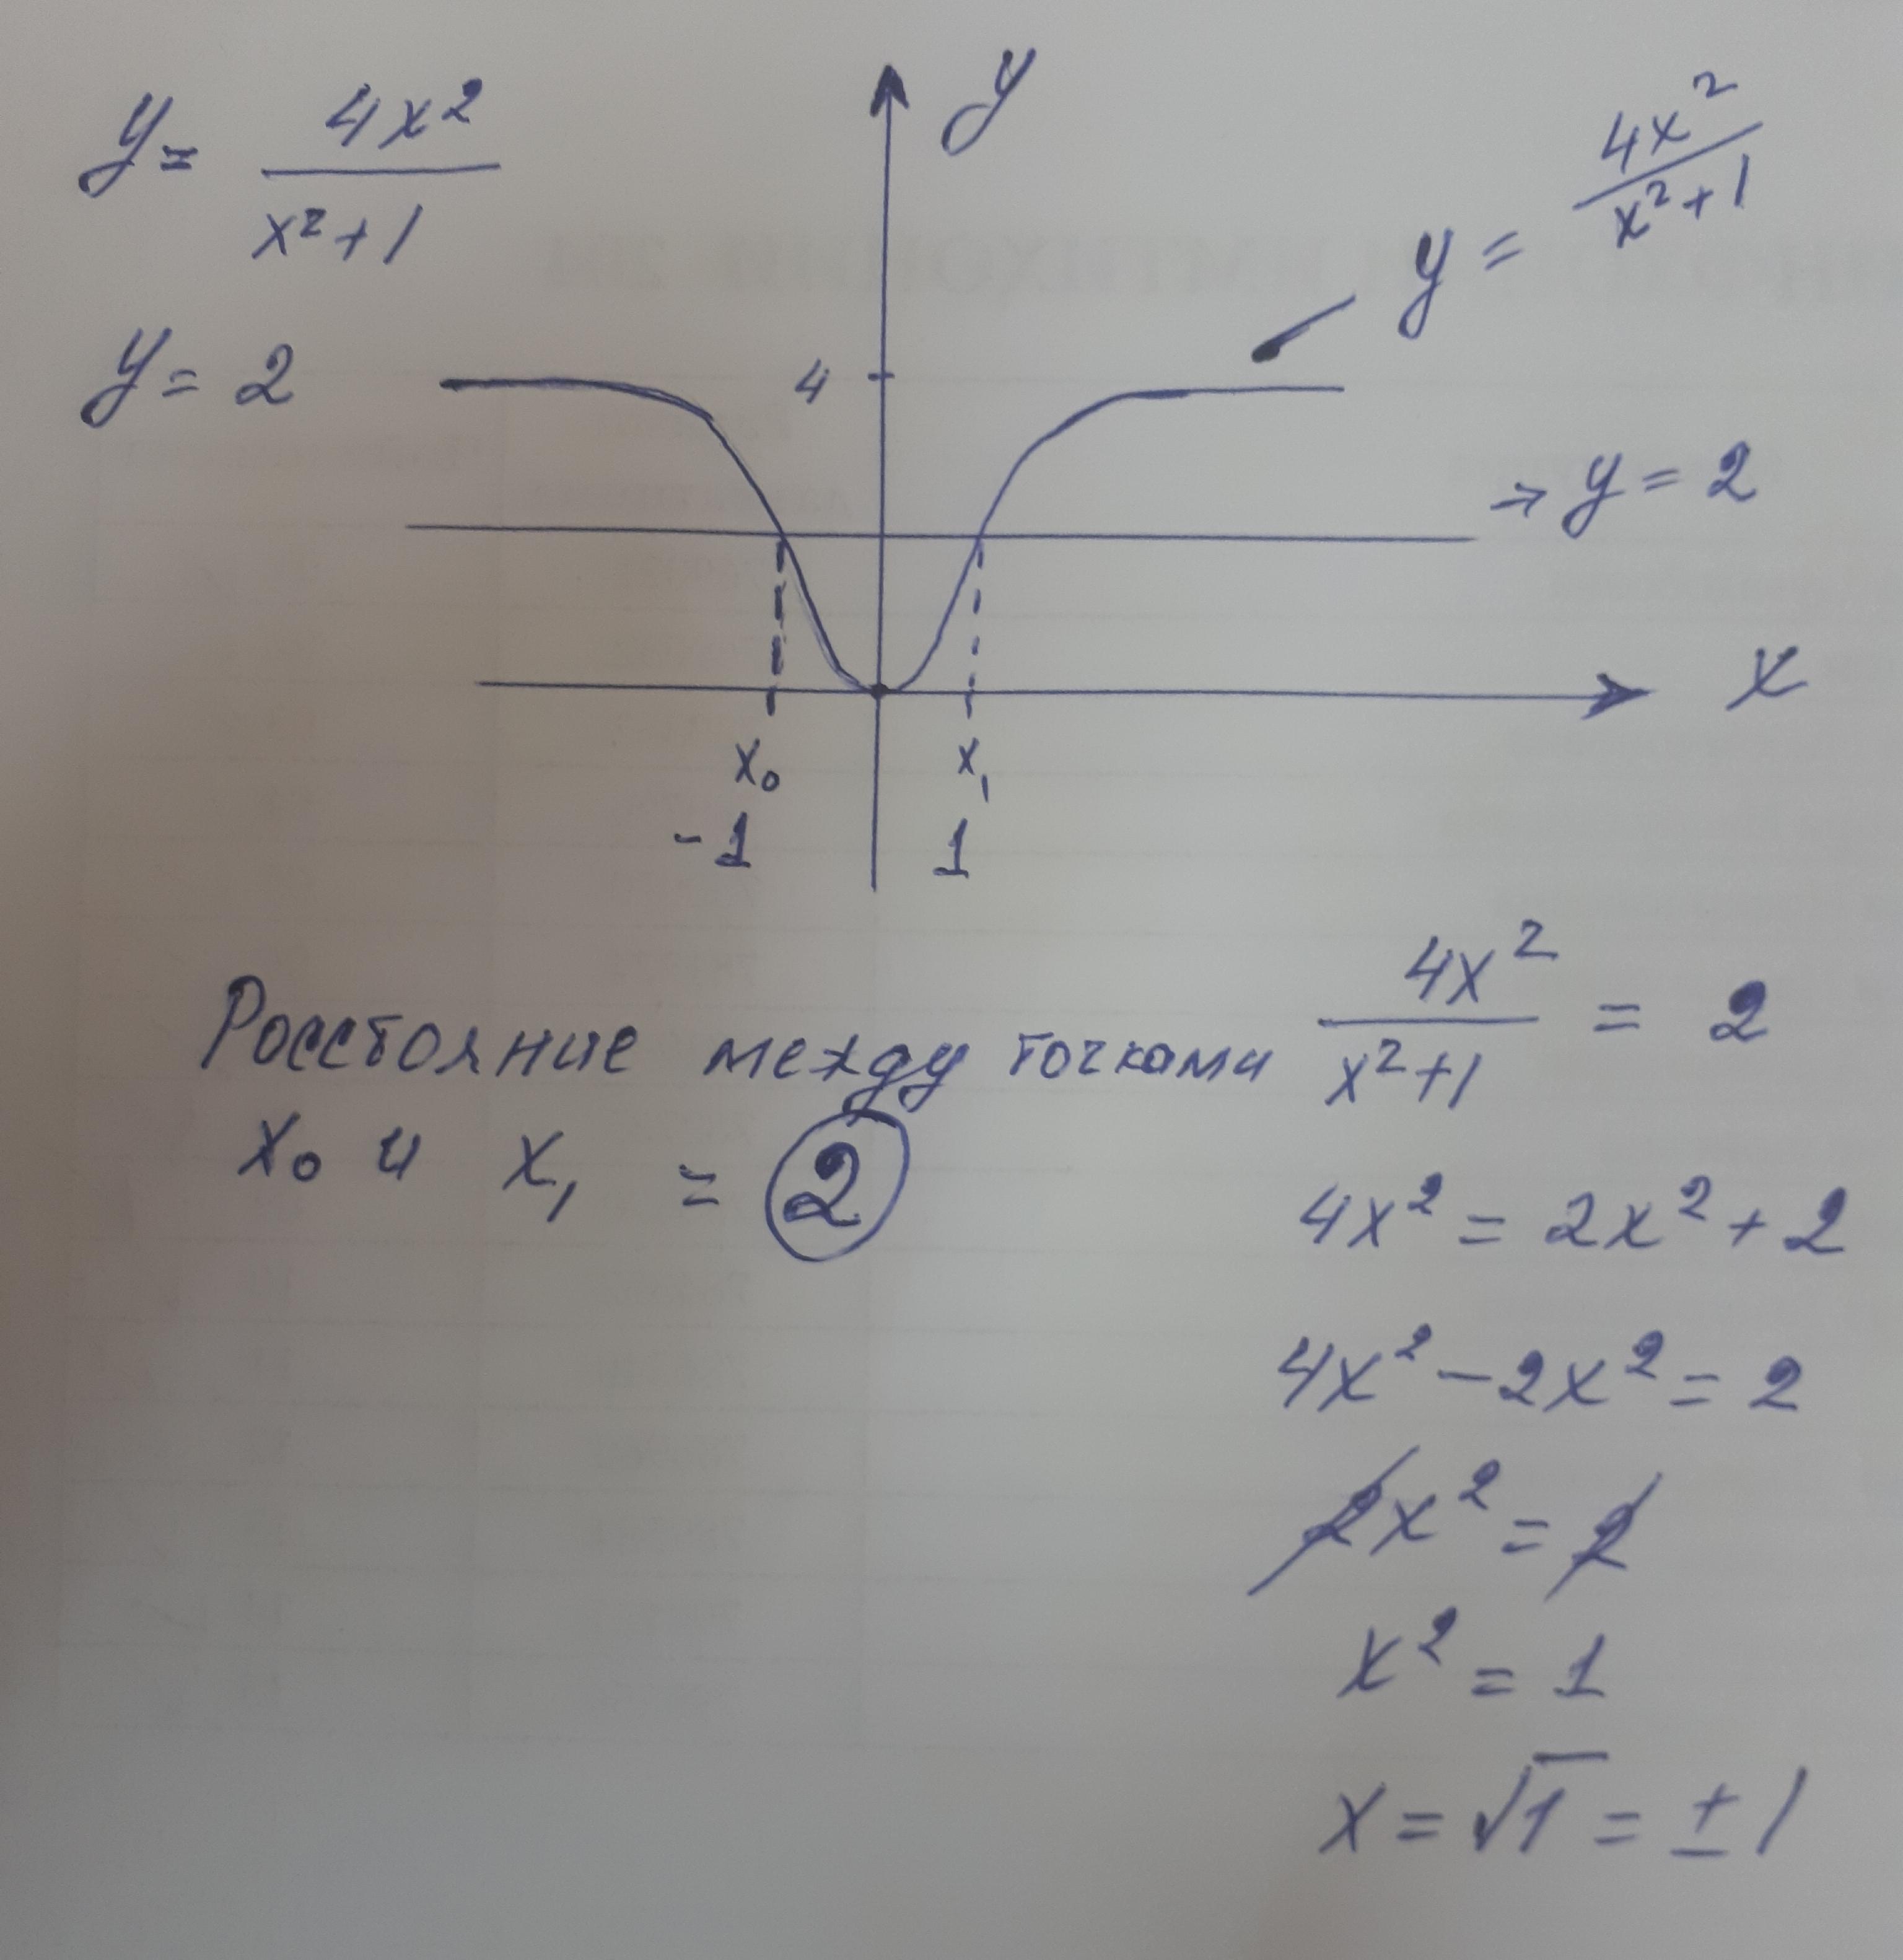 y = 4x²/(x²+1)
y = 2
y
y = 4x²/(x²+1)
4
→ y = 2
x
x₀ x₁
-1 1
Росстояние между точками
x₀ и x₁ = 2
4x²/(x²+1) = 2
4x² = 2x² + 2
4x² - 2x² = 2
2x² = 2
x² = 1
x = √1 = ± 1